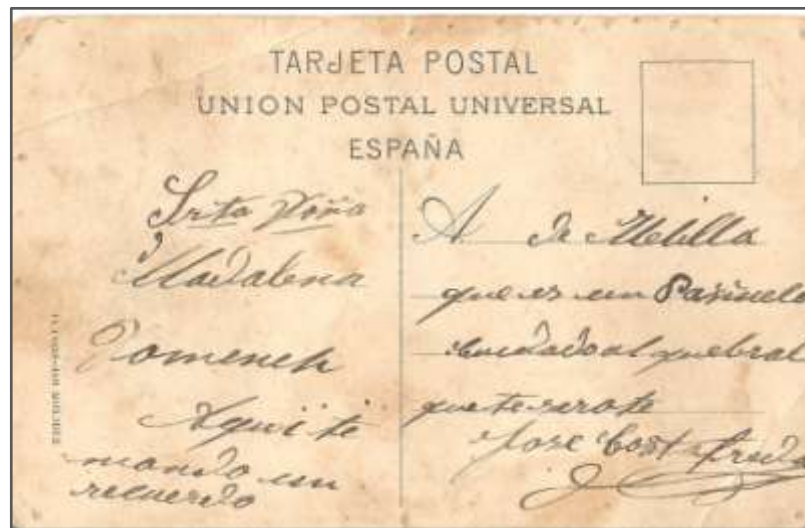 TARJETA POSTAL
UNION POSTAL UNIVERSAL
ESPAÑA
Srta Doña
Madalena
Domenech
Aqui te
mando un
recuerdo
A de Melilla
que es un Pañuelo
Cuidado al quebral
que te
Jose Costa